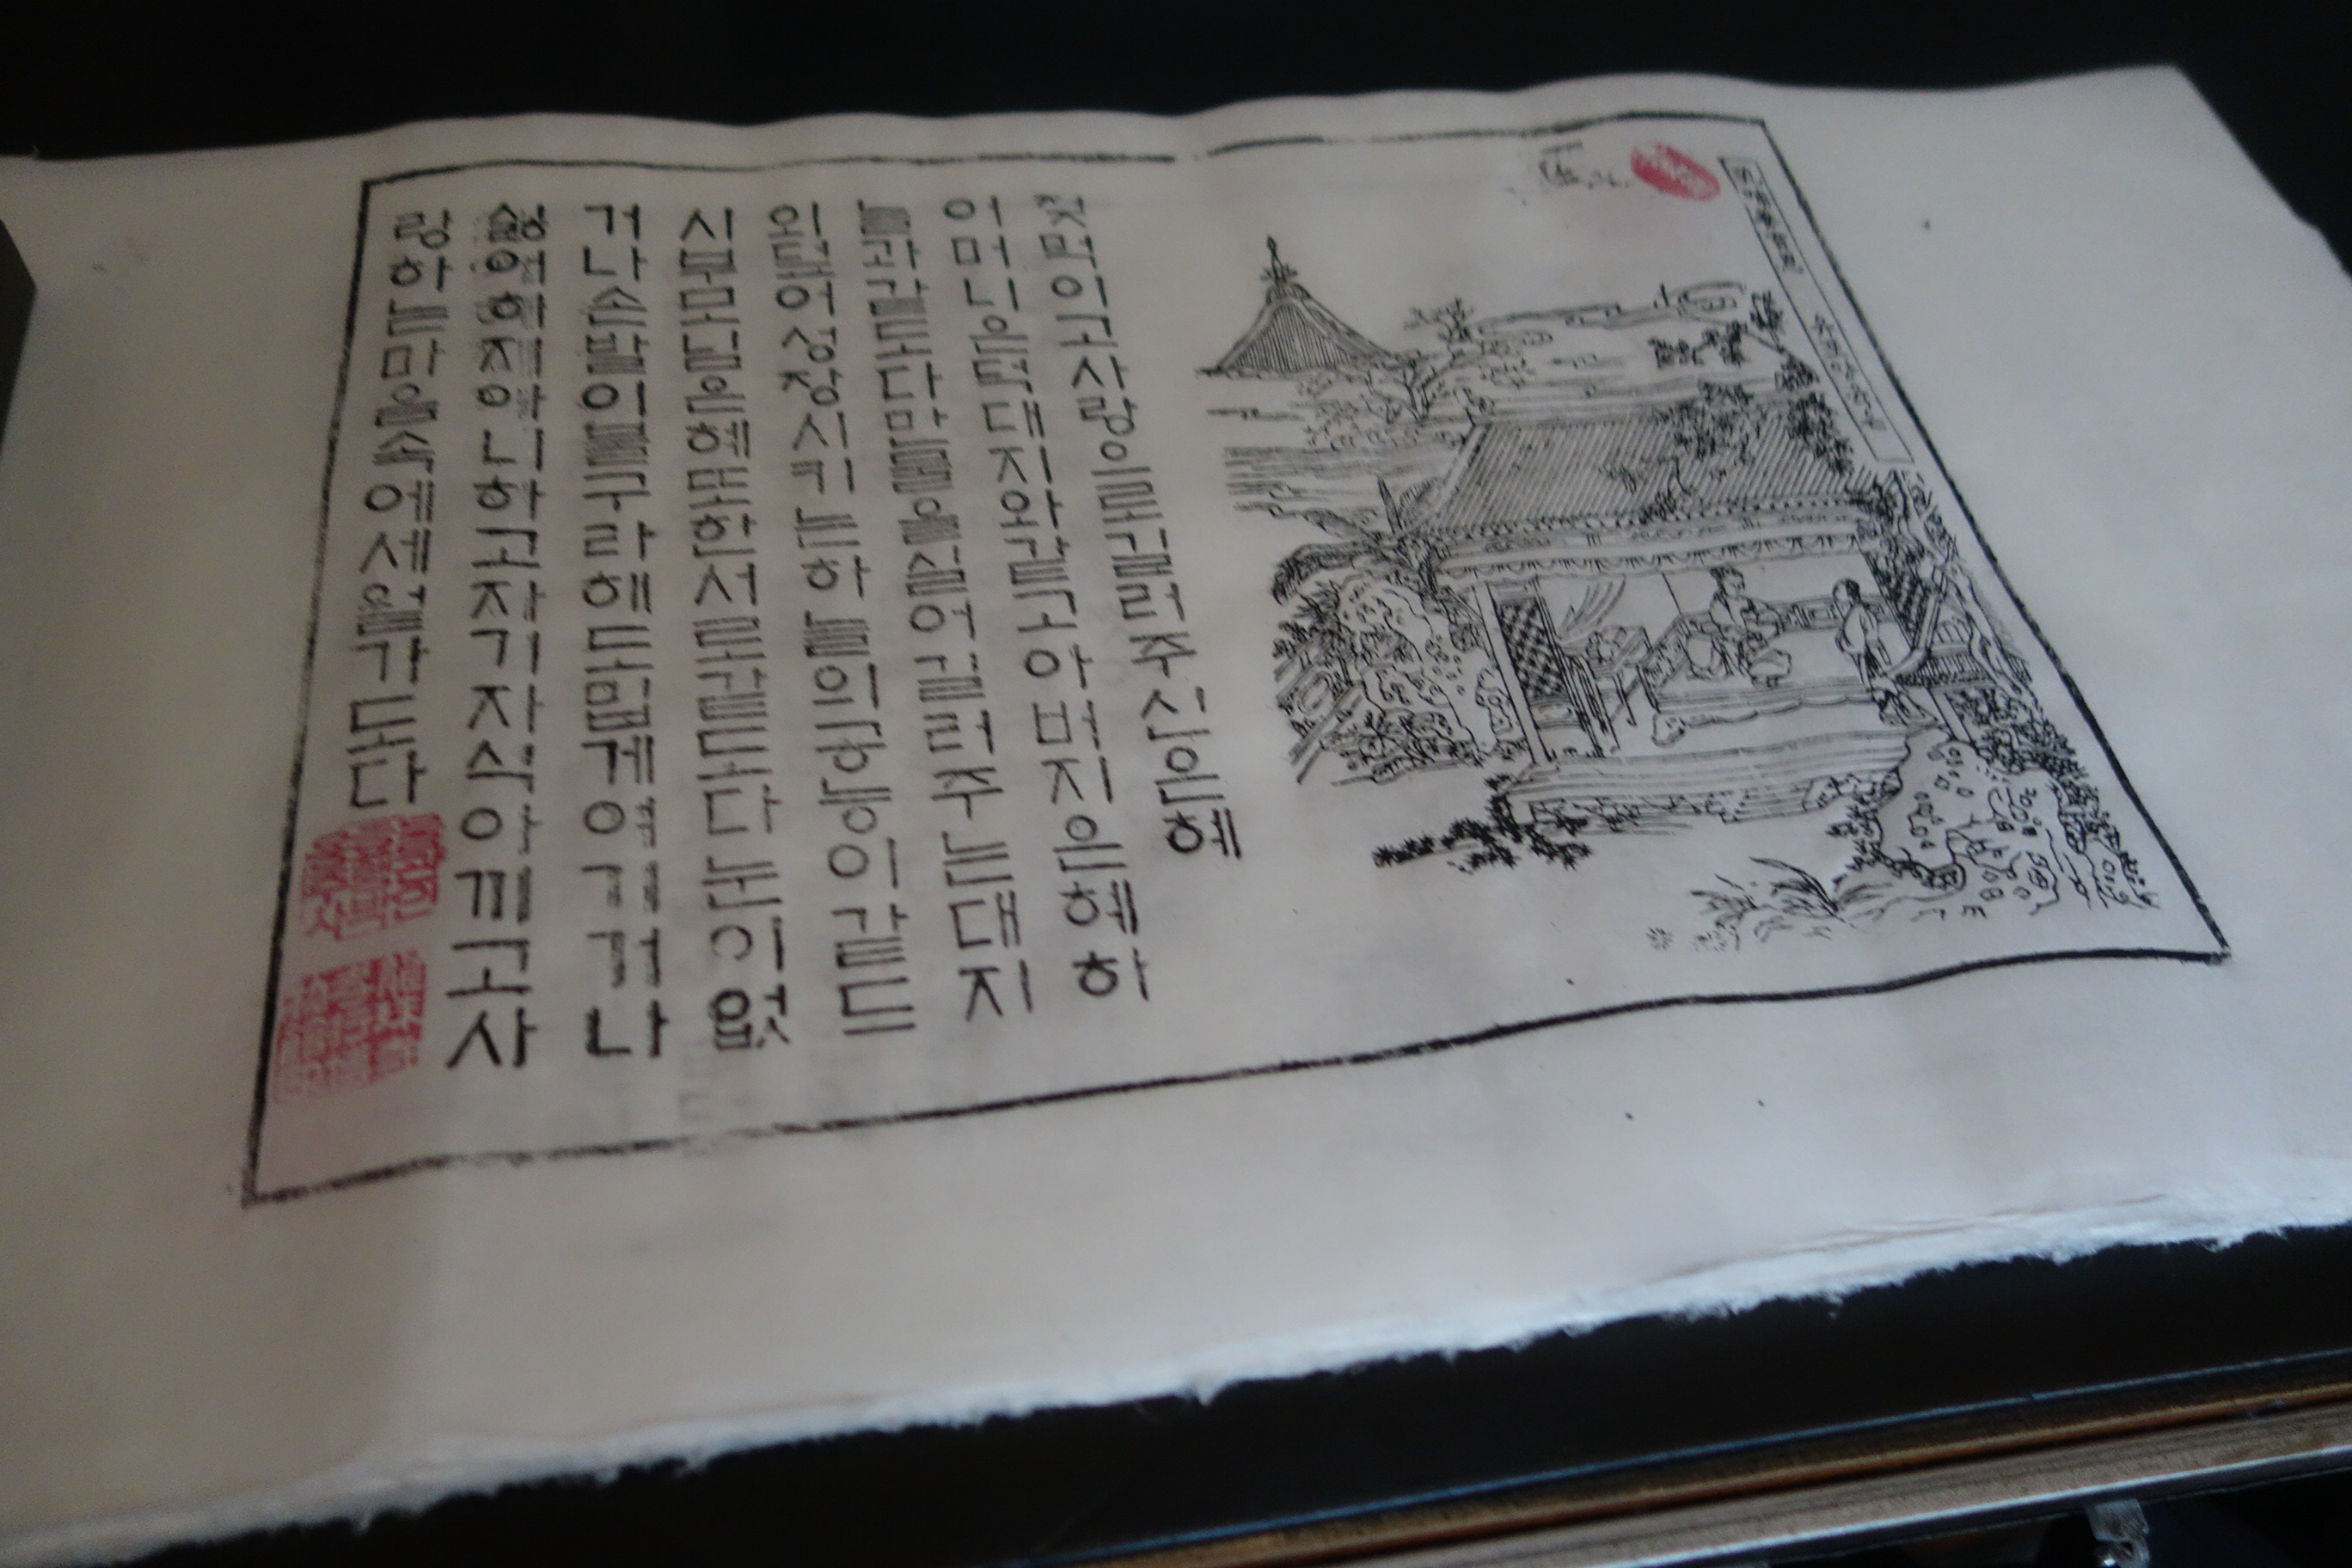 젖먹이고사랑으로길러주신은혜
어머니은덕대지와같고아버지은혜하
늘과같도다만물을심어길러주는대지
와덮어성장시키는하늘의공능이같드
시부모님은혜또한서로같도다눈이없
거나손발이불구라해도밉게여기거나
싫어하지아니하고자기자식아끼고사
랑하는마음속에세월가도다